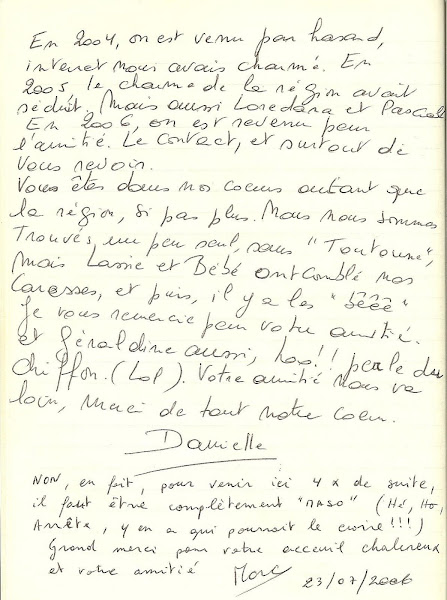 En 2004, on est venu par hasard,
internet nous avais charmé. En
2005, le charme de la région avait
séduit. Mais aussi Loredana et Pascal
En 2006, on est revenu pour
l'amitié. Le contact, et surtout de
vous revoir.
Vous êtes dans nos coeurs autant que
la région, si pas plus. Nous nous sommes
Trouvés, un peu seul, sans "Toutoune",
mais Lassie et Bébé ont comblé nos
Caresses, et puis, il y a les "bêêê"
Je vous remercie pour votre amitié.
et Géraldine aussi, hoo!! parle du
chiffon. (Lol). Votre amitié nous va
loin, Merci de tout notre coeur.
Danielle
NON, en fait, pour venir ici 4 x de suite,
il faut être complètement "MASO" (Hé, Ho,
Arrête, y en a qui pourrait le croire!!!)
Grand merci pour votre acceuil chaleureux
et votre amitié Marc 23/07/2006